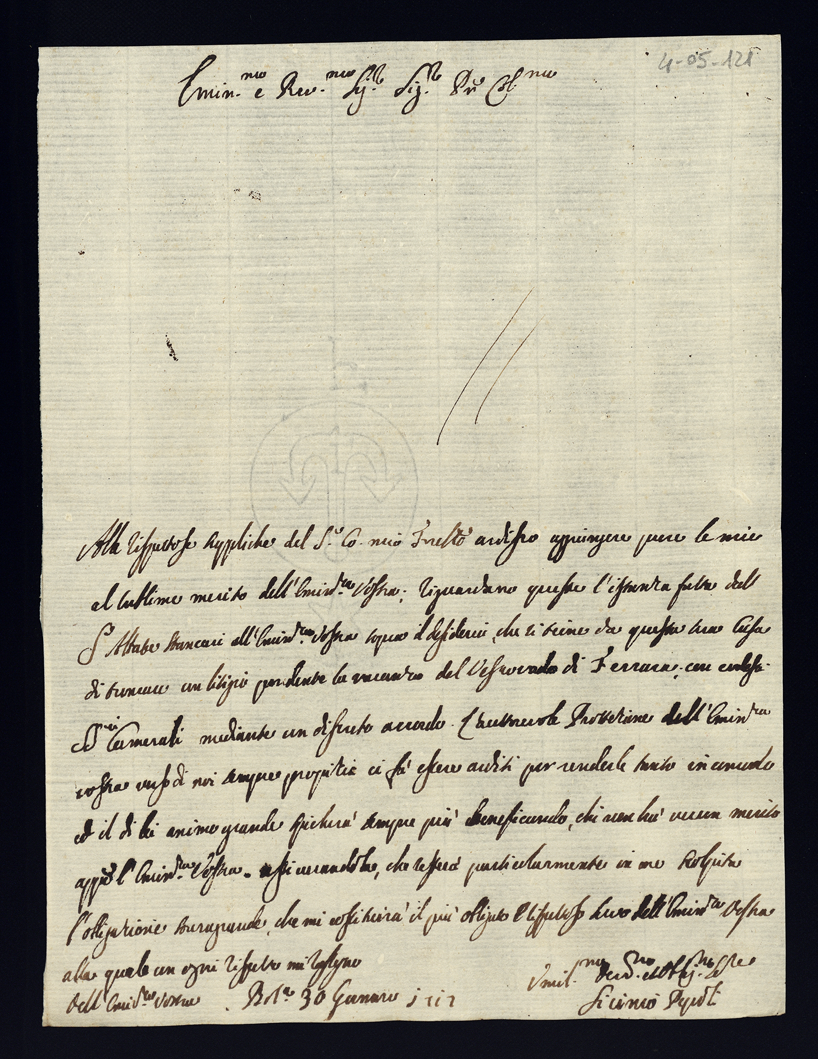 4-05-121
Emin.mo e Rev.mo Sig.r Sig.r P̃rõn Col.mo
Alle rispettose suppliche del S.r Co. mio Frello ardisco aggiungere pure le mie
al sublime merito dell'Emin.za Vostra; riguardano queste l'istanza fatta dall
S.r Abbate Stancari all'Emin.za Vostra sopra il desiderio, che si tiene da questa tua Casa
di troncare un litigio pendente la vacanza del Vescovado di Ferrara, con codesti
Camerali mediante un discreto accordo. L'autorevole Protettione dell'Emin.za
vostra verso di noi sempre propitia ci fà essere arditi per renderle tanto incomodo
ed il di lei animo grande spicherà sempre più beneficando, chi non hà verun merito
app.o l'Emin.za Vostra. assicurandola, che resterà particolarmente in me scolpita
l'obligatione, che mi costituirà il più obligato e rispettoso Servo dell'Emin.za Vostra
alla quale con ogni rispetto mi rassegno
Dell'Emin.za Vostra Bol.a 30 Gennaro 1717
Umil.mo Dev.mo et Obblig.mo Ser.re
Sicinio Pepoli